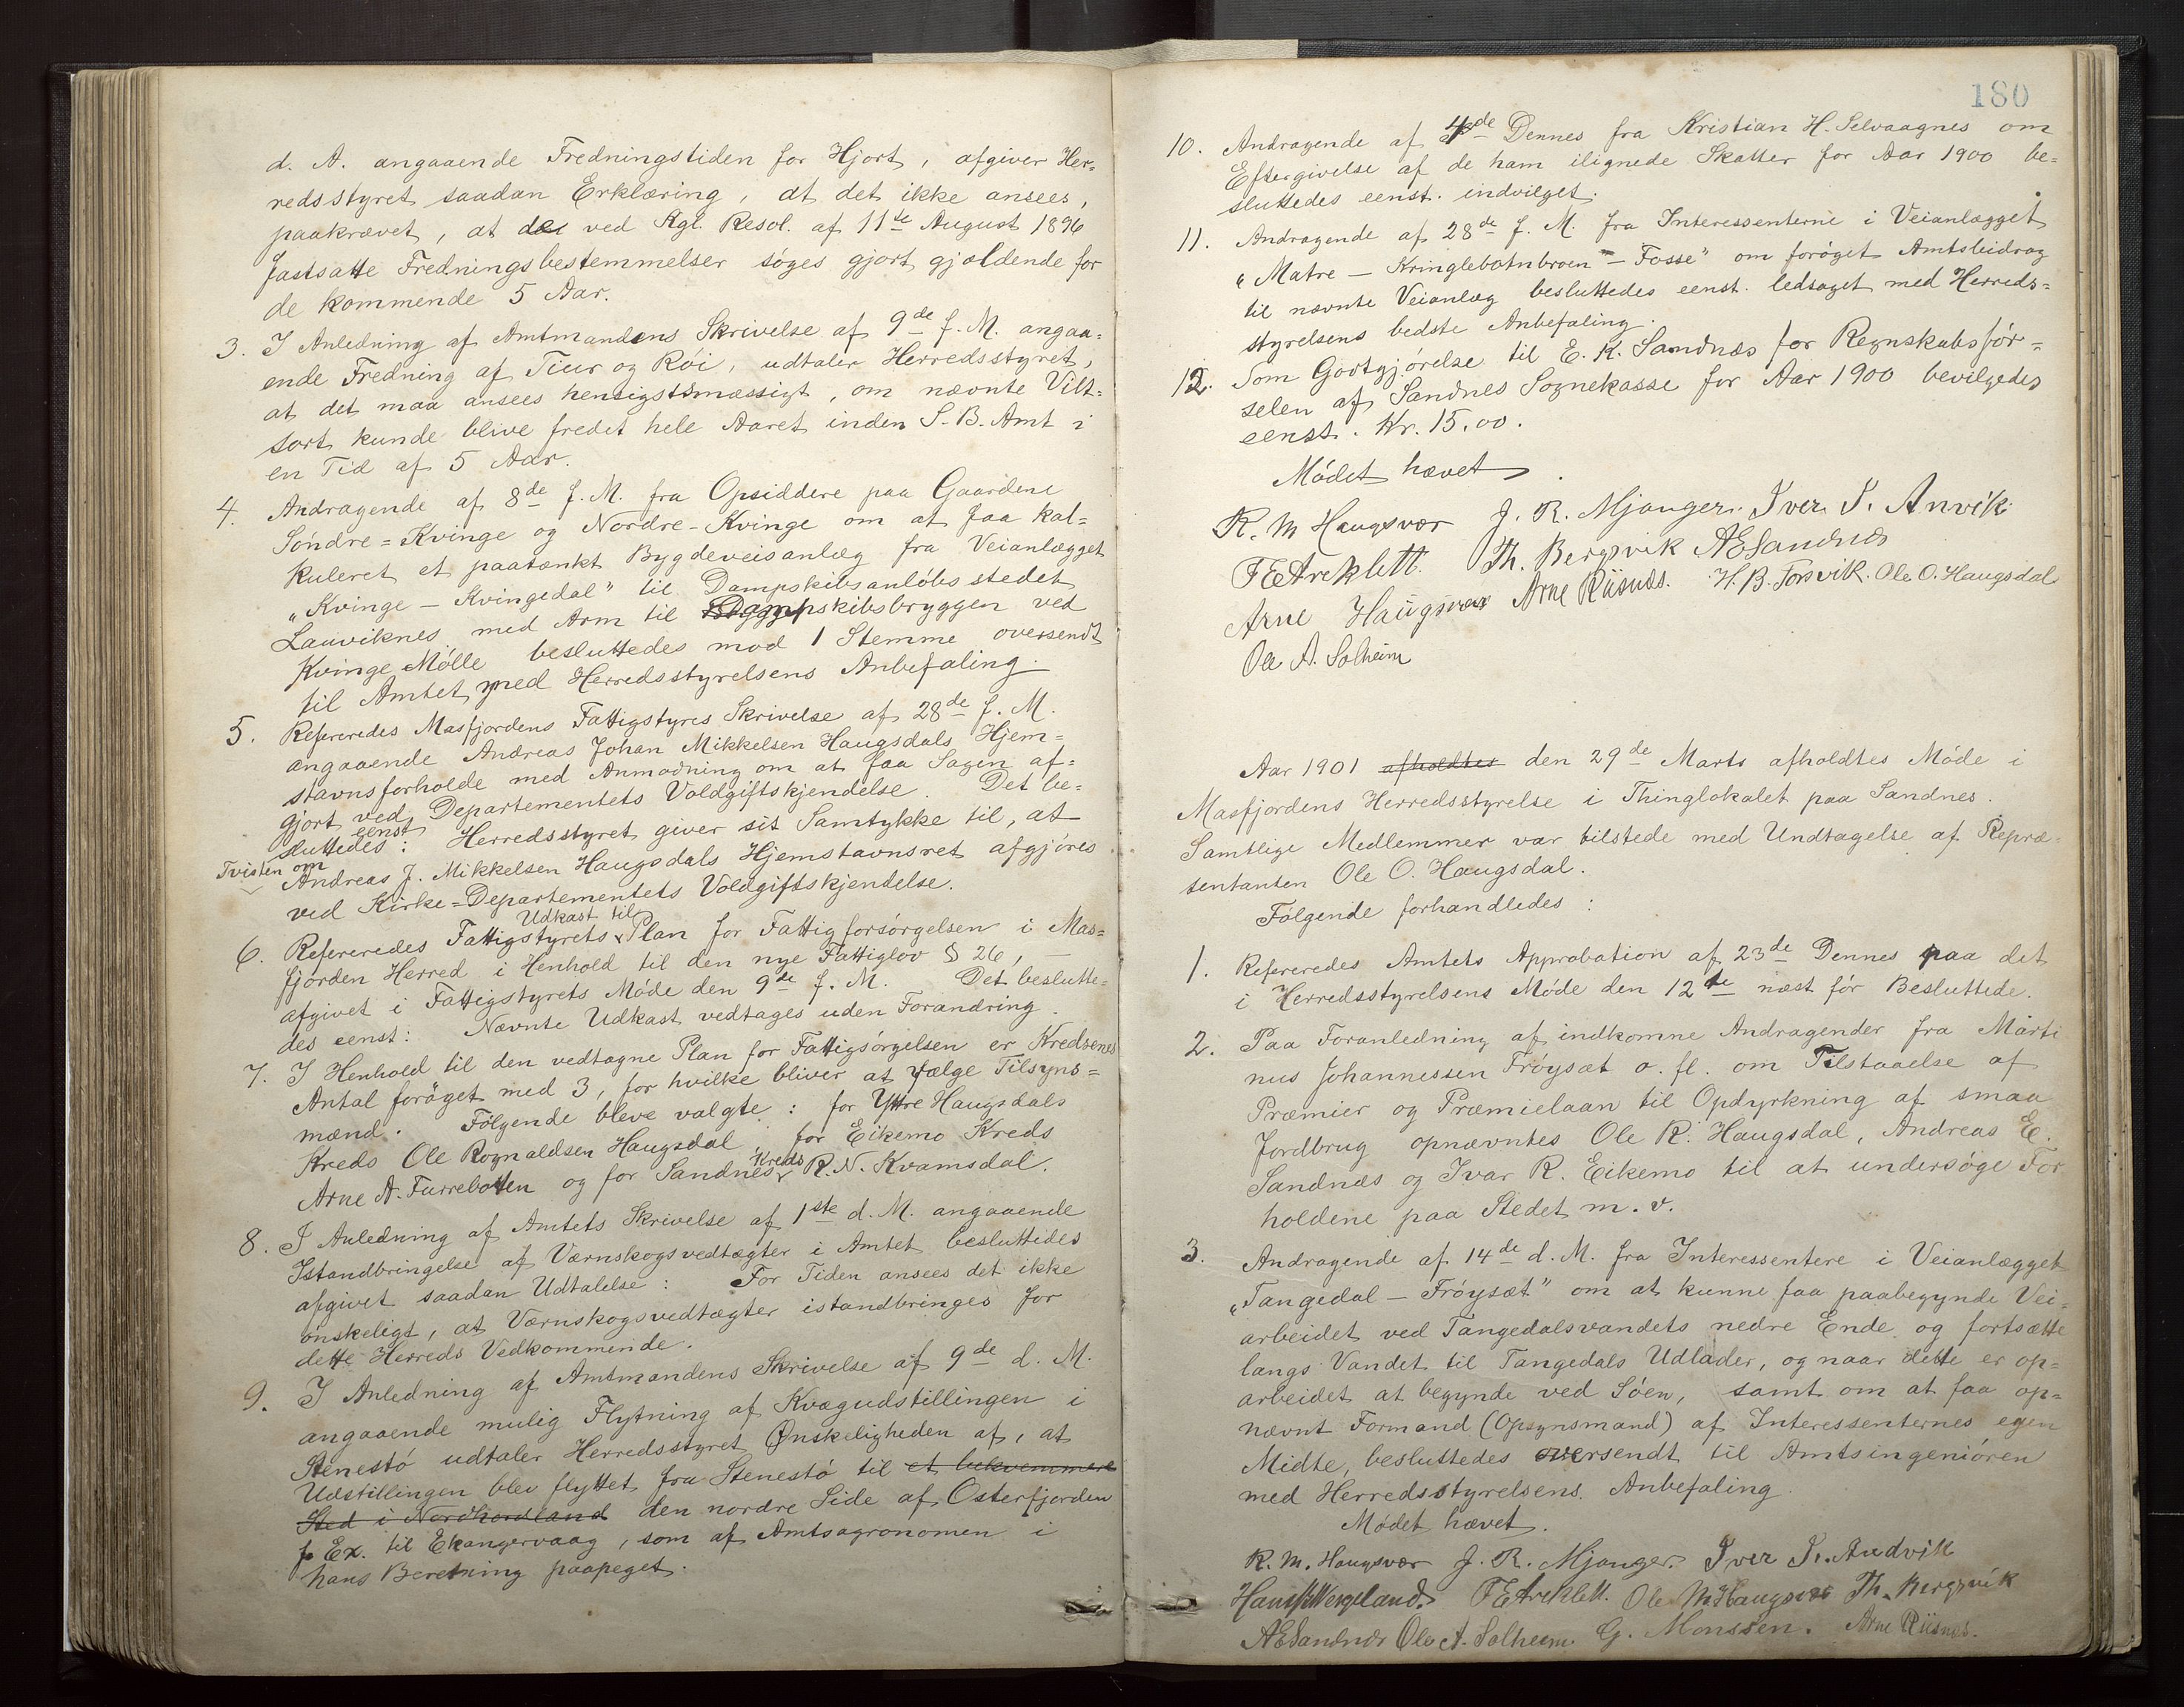 d. A. angaaende Fredningstiden for Hjort, afgiver Her-
redsstyret saadan Erklæring, at det ikke ansees,
paakrævet, at de ved Kgl. Resol. af 11te August 1896
fastsatte Fredningsbestemmelser søges gjort gjældende for
de kommende 5 Aar.
3. I Anledning af Amtmandens Skrivelse af 9de f. M. angaa-
ende Fredning af Tiur og Røi, udtaler Herredsstyret,
at det maa ansees hensigtsmæssigt, om nævnte Vilt-
sort kunde blive fredet hele Aaret inden S. B. Amt i
en Tid af 5 Aar.
4. Andragende af 8de f. M. fra Opsiddere paa Gaardene
Søndre=Kvinge og Nordre-Kvinge om at faa kal=
kuleret et paatænkt Bygdeveisanlæg fra Veianlægget
"Kvinge – Kvingedal" til Dampskibsanløbsstedet
Lauviknes med Arm til Dampskibsbryggen ved
Kvinge Mølle besluttedes mod 1 Stemme oversendt
til Amtet med Herredsstyrelsens Anbefaling.
5. Refereredes Masfjordens Fattigstyres Skrivelse af 28de f. M.
angaaende Andreas Johan Mikkelsen Haugsdals Hjem=
stavnsforholde med Anmodning om at faa Sagen af=
gjort ved Departementets Voldgiftskjendelse. Det be=
sluttedes eenst: Herredsstyret giver sit Samtykke til, at
Tvisten om Andreas J. Mikkelsen Haugsdals Hjemstavnsret afgjøres
ved Kirke=Departementets Voldgiftskjendelse.
6. Refereredes Fattigstyrets Udkast til Plan for Fattigforsørgelsen i Mas=
fjorden Herred i Henhold til den nye Fattiglov § 26, —
afgivet i Fattigstyrets Møde den 9de f. M. Det beslutte=
des eenst: Nævnte Udkast vedtages uden Forandring.
7. I Henhold til den vedtagne Plan for Fattigsørgelsen er Kredsenes
Antal forøget med 3, for hvilke bliver at vælge Tilsyns=
mænd. Følgende bleve valgte: for Yttre Haugsdals
Kreds Ole Rognaldsen Haugsdal, for Eikemo Kreds
Arne A. Furrebotten og for Sandnes Kreds R. N. Kvamsdal.
8. I Anledning af Amtets Skrivelse af 1ste d. M. angaaende
Istandbringelse af Værnskogsvedtægter i Amtet besluttedes
afgivet saadan Udtalelse: For Tiden ansees det ikke
ønskeligt, at Værnskogsvedtægter istandbringes for
dette Herreds Vedkommende.
9. I Anledning af Amtmandens Skrivelse af 9de d. M.
angaaende mulig Flytning af Kvægudstillingen i
Stenestø udtaler Herredsstyret Ønskeligheden af, at
Udstillingen blev flyttet fra Stenestø til et bekvemmere
Sted i Nordhordland den nordre Side af Osterfjorden
f. Ex. til Eikangervaag, som af Amtsagronomen i
hans Beretning paapeget.
180
10. Andragende af 4de Dennes fra Kristian H. Selvaagnes om
Eftergivelse af de ham ilignede Skatter for Aar 1900 be=
sluttedes eenst. indvilget.
11. Andragende af 28de f. M. fra Interessenterne i Veianlægget
"Matre – Kringlebotnbroen – Fosse" om forøget Amtsbidrag
til nævnte Veianlæg besluttedes eenst. ledsaget med Herreds=
styrelsens bedste Anbefaling.
12. Som Godtgjørelse til E. K. Sandnæs for Regnskabsfør=
selen af Sandnes Sognekasse for Aar 1900 bevilgedes
eenst. Kr. 15.00.
Mødet hævet
K. M. Haugsvær J. R. Mjanger. Iver I. Anvik
F E Areklett. Th. Bergsvik AESandnes
Arne Haugsvær Arne Riisnes. H. B. Torsvik. Ole O. Haugsdal
Ole A. Solheim
Aar 1901 afholdtes den 29de Marts afholdtes Møde i
Masfjordens Herredsstyrelse i Thinglokalet paa Sandnes.
Samtlige Medlemmer var tilstede med Undtagelse af Repræ-
sentanten Ole O. Haugsdal.
Følgende forhandledes:
1. Refereredes Amtets Approbation af 23de Dennes paa det
i Herredsstyrelsens Møde den 12te næst før Besluttede.
2. Paa Foranledning af indkomne Andragender fra Marti
nus Johannessen Frøysæt o. fl. om Tilstaaelse af
Præmier og Præmielaan til Opdyrkning af smaa
Jordbrug opnævntes Ole R. Haugsdal, Andreas E.
Sandnæs og Ivar R. Eikemo til at undersøge For
holdene paa Stedet m. v.
3. Andragende af 14de d. M. fra Interessentere i Veianlægget
"Tangedal – Frøysæt" om at kunne faa paabegynde Vei=
arbeidet ved Tangedalsvandets nedre Ende og fortsætte
langs Vandet til Tangedals Udlader, og naar dette er op=
arbeidet at begynde ved Søen, samt om at faa op=
nævnt Formand (Opsynsmand) af Interessenternes egen
Midte, besluttedes oversendt til Amtsingeniøren
med Herredsstyrelsens Anbefaling.
Mødet hævet.
K. M. Haugsvær J. R. Mjanger. Iver I. Andvik
Hans Wergeland. F E Areklett. Ole M Haugsvær Th. Bergsvik
AESandnes Ole A. Solheim G. Monssen. Arne Riisnes.